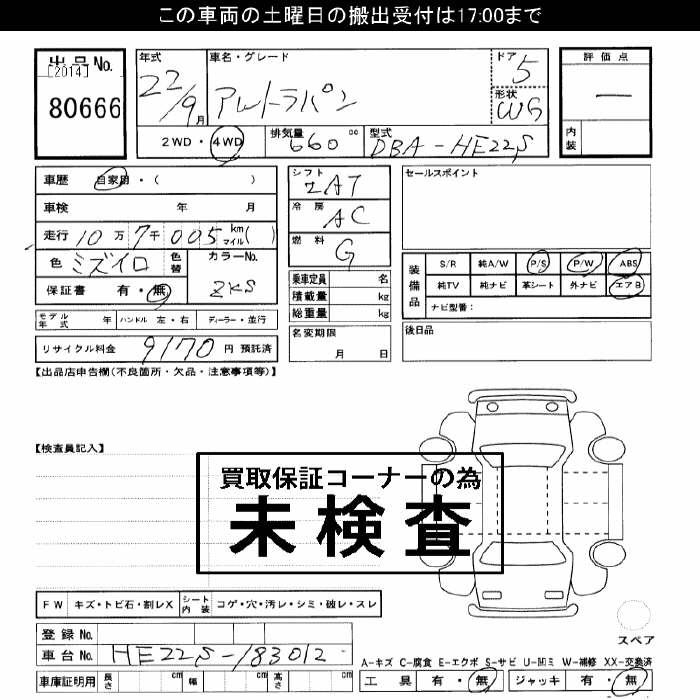 この車両の土曜日の搬出受付は17:00まで
出品No.
[2014]
80666
年式 車名・グレード ドア 評価点
22/9月 アルトラパン 5 —
形状 WG
2WD・4WD 排気量 660 cc 型式 DBA-HE22S 内装
車歴 自家用・( )
車検 年 月
走行 10万 7千 005 km マイル ( )
色 ミズイロ 色替 カラーNo. ZKS
保証書 有・無
モデル年式 年 ハンドル 左・右 ディーラー・並行
リサイクル料金 9170 円 預託済
シフト 2AT
冷房 AC
燃料 G
乗車定員 名
積載量 kg
総重量 kg
名変期限
月 日
セールスポイント
装備品 S/R 純A/W P/S P/W ABS
純TV 純ナビ 革シート 外ナビ エアB
ナビ型番:
後日品
【出品店申告欄(不良箇所・欠品・注意事項等)】
【検査員記入】
買取保証コーナーの為
未検査
FW キズ・トビ石・割レX シート内装 コゲ・穴・汚レ・シミ・破レ・スレ
登録No.
車台No. HE22S-183012
車庫証明用 長さ cm 幅 cm 高さ cm
スペア
A-キズ C-腐食 E-エクボ S-サビ U-凹ミ W-補修 XX-交換済
工具 有・無 ジャッキ 有・無